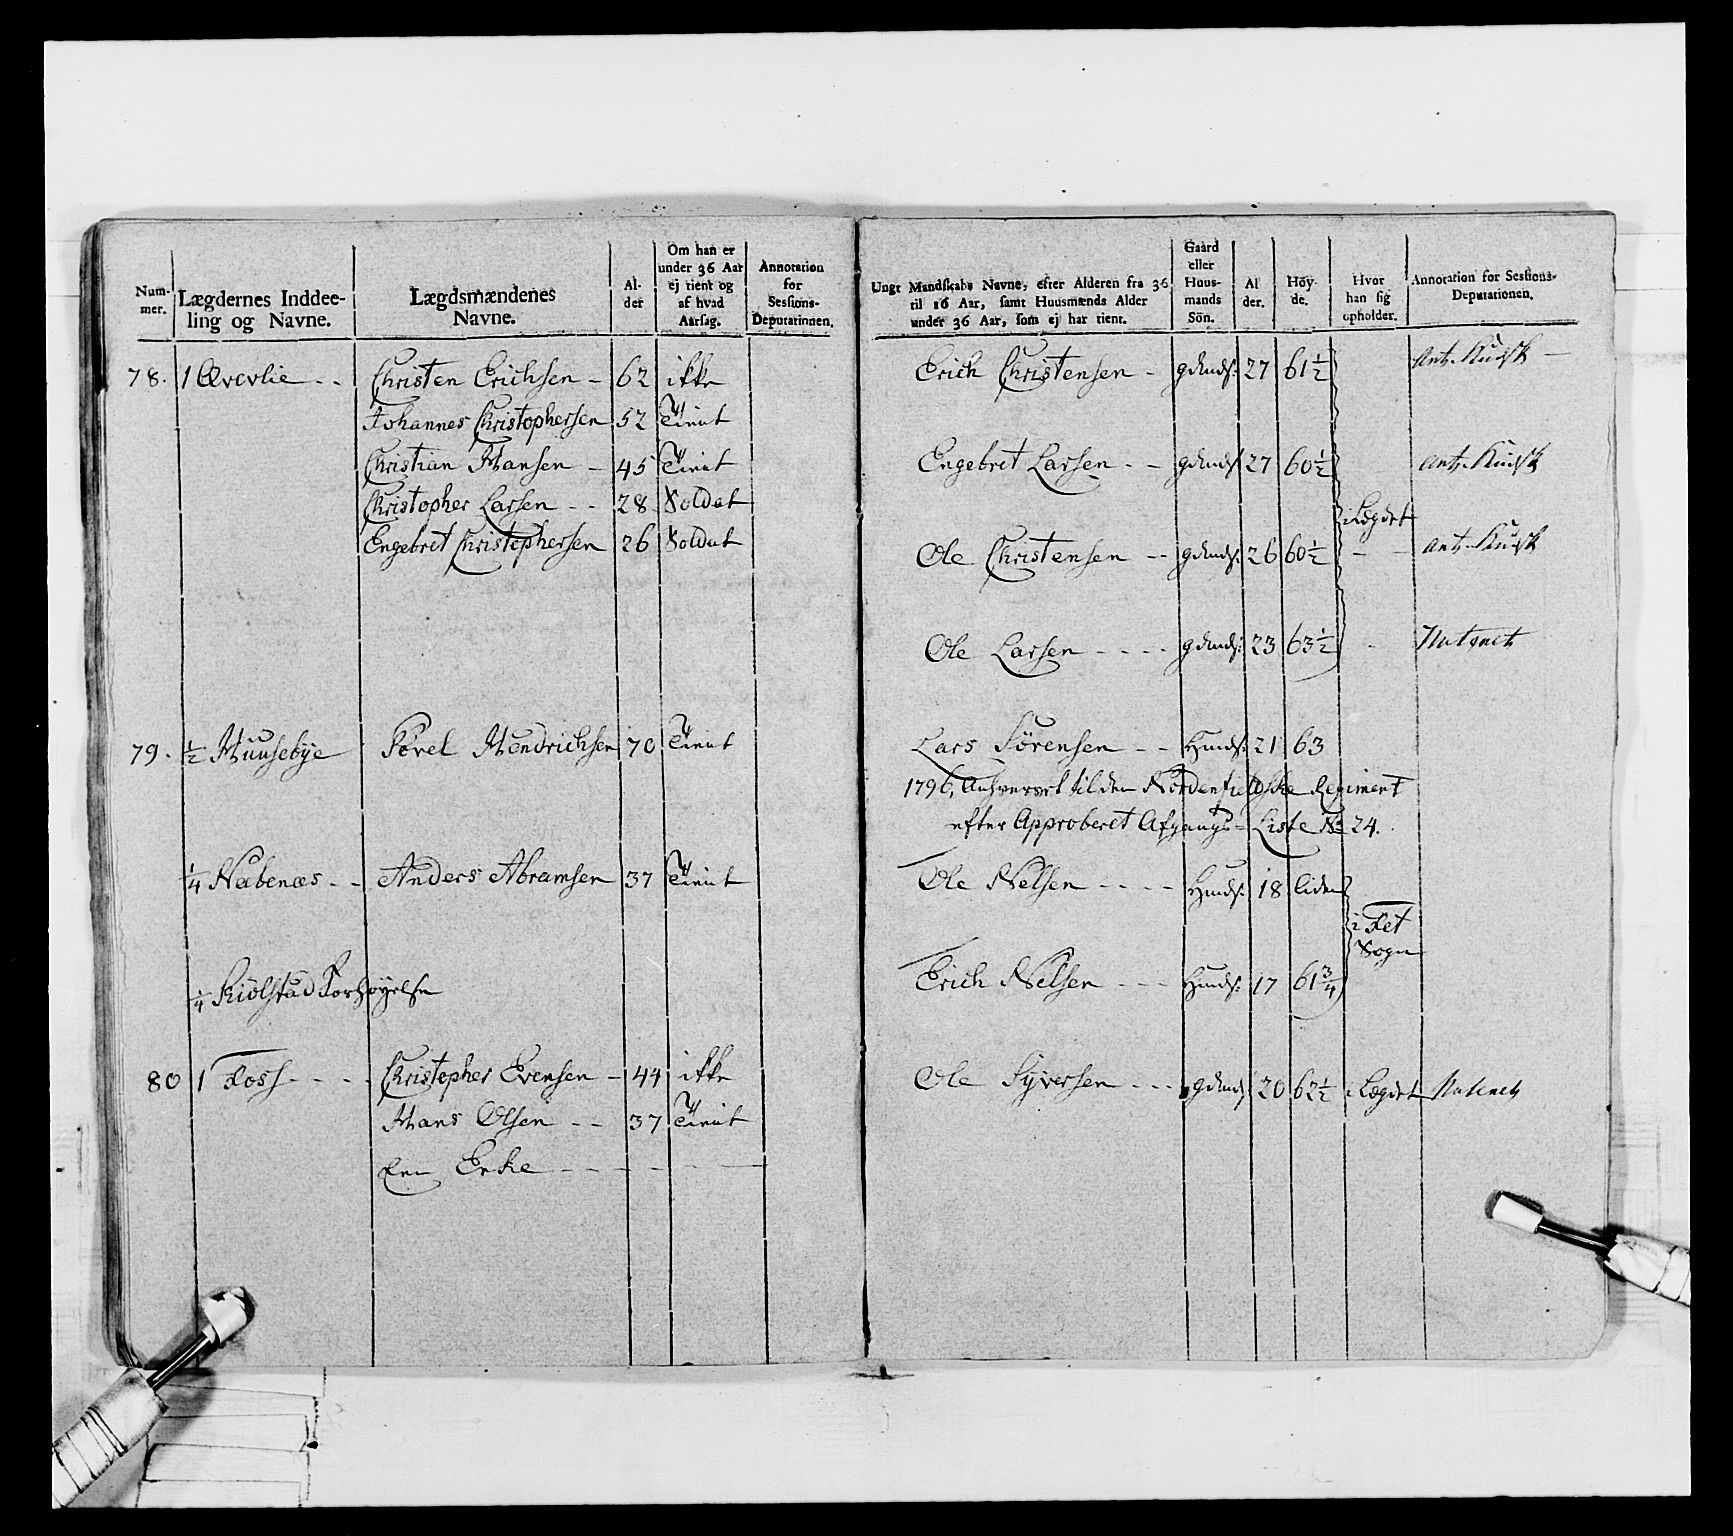 Num-
mer.
Lægdernes Inddee-
ling og Navne.
Lægdsmændenes
Navne.
Al-
der
Om han er
under 36 Aar
ej tient og
af hvad
Aarsag.
Annotation
for
Sessions-
Deputationen.
78. 1 Ævevlie - - Christen Erichsen - 62 ikke
Johannes Christophersen 52 Tient
Christian Hansen - 45 Tient
Christopher Larsen - - 28 Soldat
Engebret Christophersen 26 Soldat
79. ½ Huusebye Povel Hendrichsen 70 Tient
¼ Næbenæs - - Anders Abramsen 37 Tient
¼ Kiölstad Forhøyelse
80 1 Foss - - - - Christopher Evensen - 44 ikke
Hans Olsen - - 37 Tient
Enke - - - - - -
Ungt Mandskabs Navne, efter Alderen fra 36
til 16 Aar, samt Huusmænds Alder
under 36 Aar, som ej har tient.
Gaard
eller
Huus-
mands
Sön.
Al
der.
Höy-
de.
Hvor
han sig
opholder.
Annotation for Sessions-
Deputationen.
Erich Christensen - gdmds: 27 61½ Ant. Kudsk -
Engebret Larsen - - gdmds: 27 60½ Ant. Kudsk
i Lægdet
Ole Christensen - - gdmds: 26 60½ - - Ant. Kudsk
Ole Larsen - - - - gdmds: 23 63½ -
Lars Sörensen - - Hmds: 21 63
1796, til den Nordenfieldske Regiment
efter Approberet Afgangs-Liste No 24.
Ole Nelsen - - - - Hmds: 18 liden
i Fet
Sogn
Erich Nelsen - - - Hmds: 17 61¾
Ole Syversen - - - gdmds 20 62½ i Lægdet